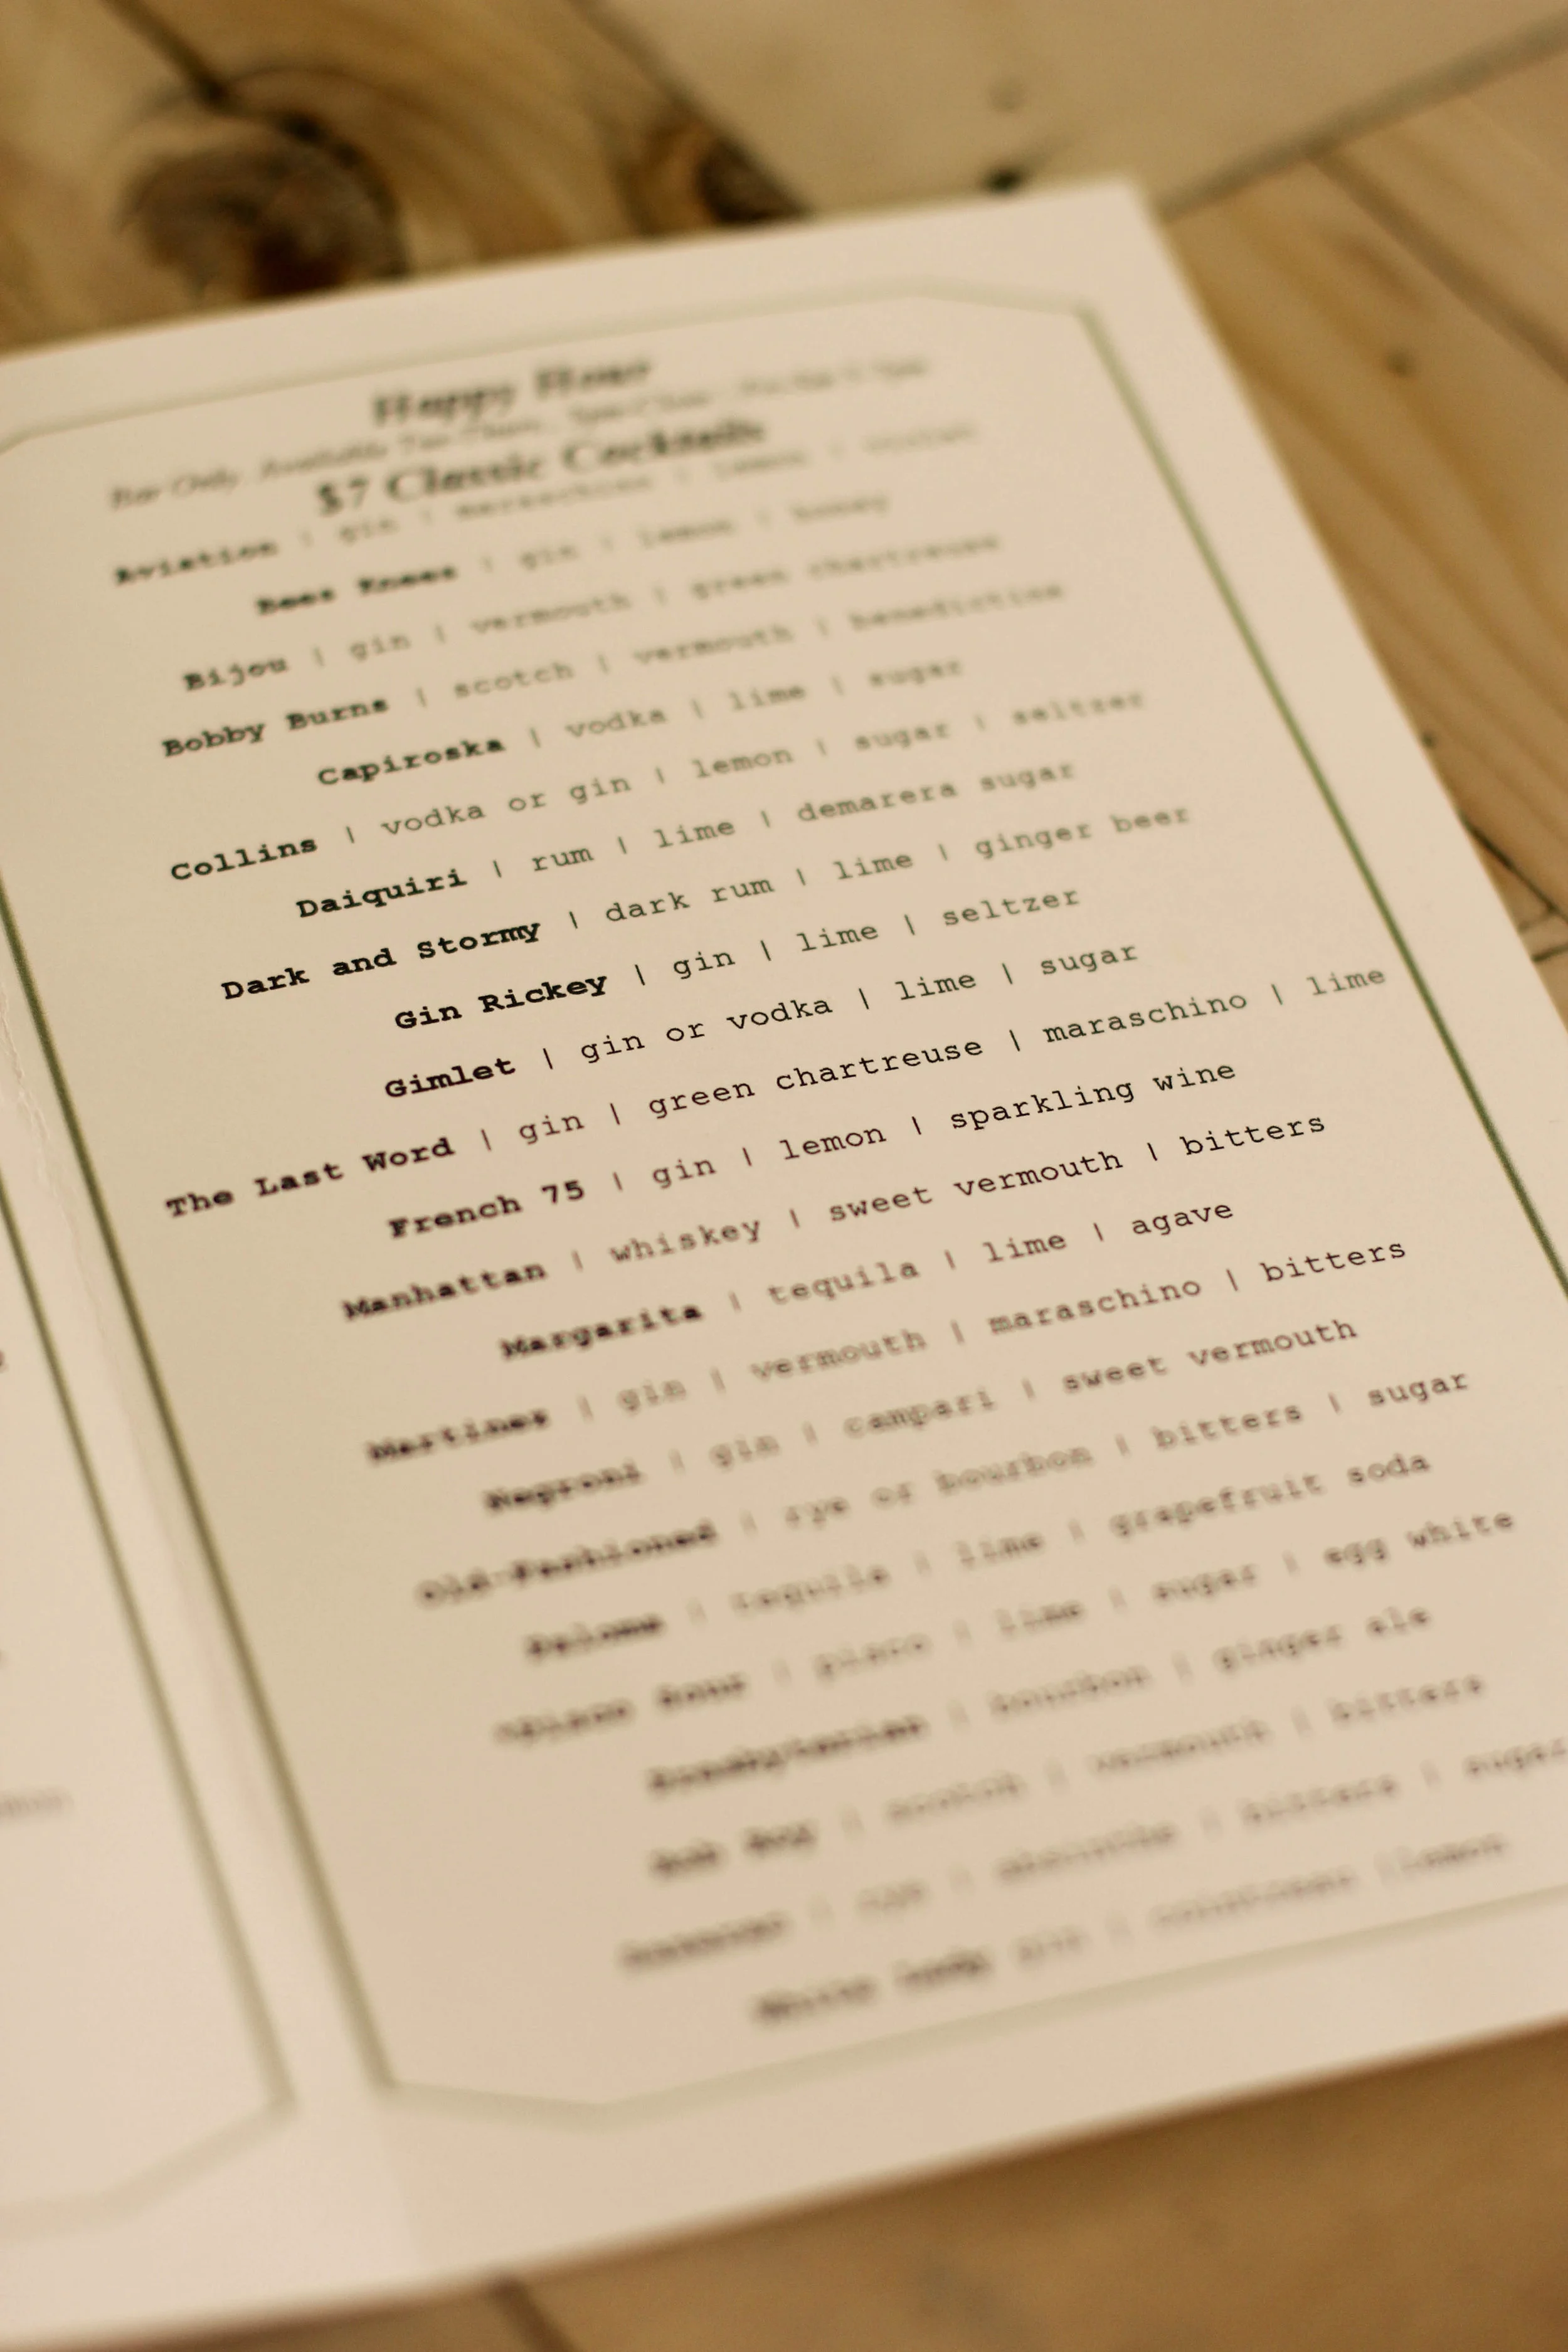 Happy Hour
Bar Only. Available
$7 Classic Cocktails
Aviation | gin | maraschino | lemon | violet
Bees Knees | gin | lemon | honey
Bijou | gin | vermouth | green chartreuse
Bobby Burns | scotch | vermouth | benedictine
Capiroska | vodka | lime | sugar
Collins | vodka or gin | lemon | sugar | seltzer
Daiquiri | rum | lime | demarera sugar
Dark and Stormy | dark rum | lime | ginger beer
Gin Rickey | gin | lime | seltzer
Gimlet | gin or vodka | lime | sugar
The Last Word | gin | green chartreuse | maraschino | lime
French 75 | gin | lemon | sparkling wine
Manhattan | whiskey | sweet vermouth | bitters
Margarita | tequila | lime | agave
Martinez | gin | vermouth | maraschino | bitters
Negroni | gin | campari | sweet vermouth
Old-Fashioned | rye or bourbon | bitters | sugar
Paloma | tequila | lime | grapefruit soda
*Pisco Sour | pisco | lime | sugar | egg white
| bourbon | ginger ale
Rob Roy | scotch | vermouth | bitters
| rye | absinthe | bitters | sugar
White Lady gin | cointreau | lemon